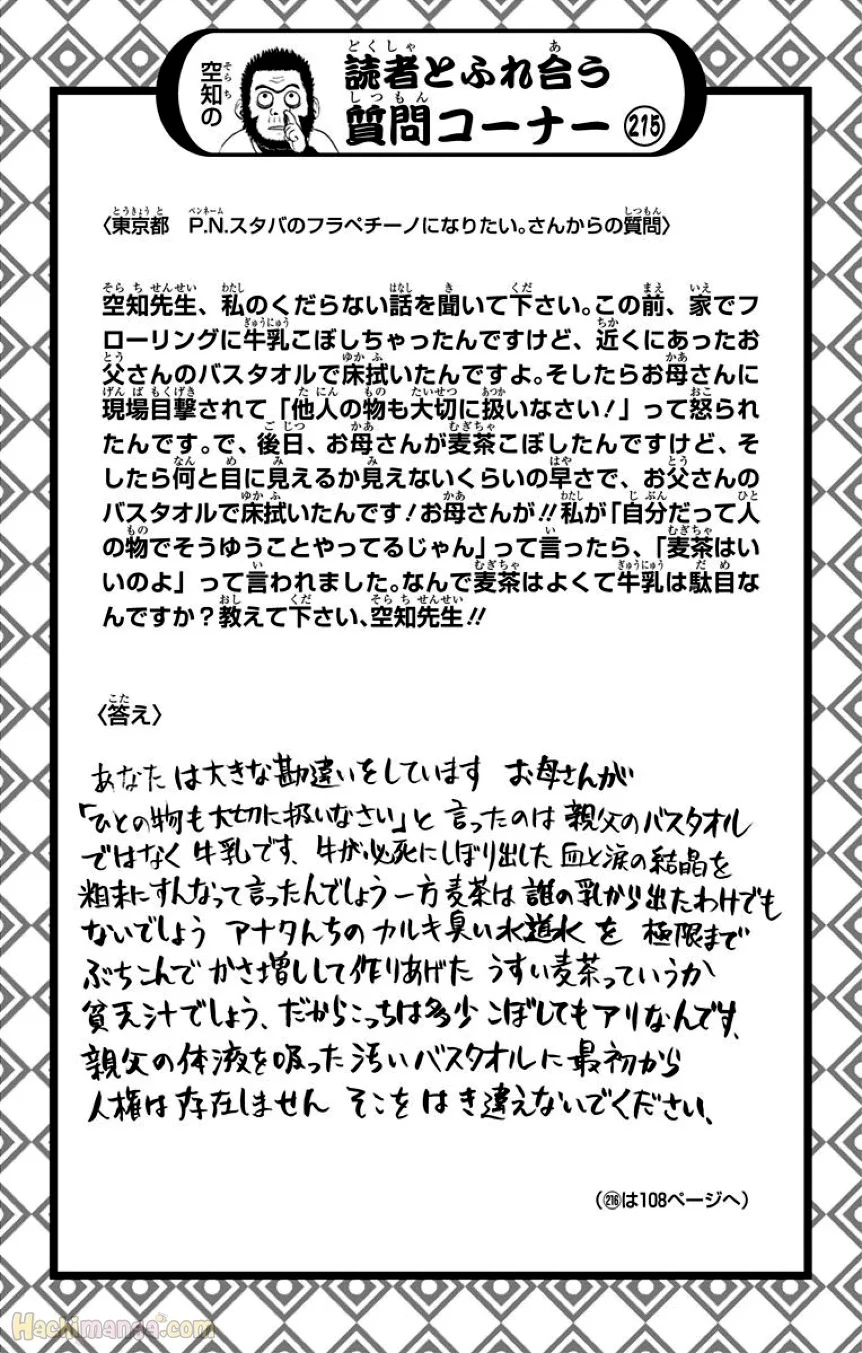 空知の
読者とふれ合う
質問コーナー 215
〈東京都　P.N.スタバのフラペチーノになりたい。さんからの質問〉
空知先生、私のくだらない話を聞いて下さい。この前、家でフ
ローリングに牛乳こぼしちゃったんですけど、近くにあったお
父さんのバスタオルで床拭いたんですよ。そしたらお母さんに
現場目撃されて「他人の物も大切に扱いなさい！」って怒られ
たんです。で、後日、お母さんが麦茶こぼしたんですけど、そ
したら何と目に見えるか見えないくらいの早さで、お父さんの
バスタオルで床拭いたんです！お母さんが!!私が「自分だって人
の物でそうゆうことやってるじゃん」って言ったら、「麦茶はい
いのよ」って言われました。なんで麦茶はよくて牛乳は駄目な
んですか？教えて下さい、空知先生!!
〈答え〉
あなたは大きな勘違いをしています お母さんが
「ひとの物も大切に扱いなさい」と言ったのは親父のバスタオル
ではなく牛乳です、牛が必死にしぼり出した血と涙の結晶を
粗末にすんなって言ったんでしょう一方麦茶は誰の乳から出たわけでも
ないでしょう アナタんちのカルキ臭い水道水を極限まで
ぶちこんでかさ増しして作りあげたうすい麦茶っていうか
貧乏汁でしょう、だからこっちは多少こぼしてもアリなんです、
親父の体液を吸った汚いバスタオルに最初から
人権は存在しません そこをはき違えないでください、
（216は108ページへ）
Hachimanga.com